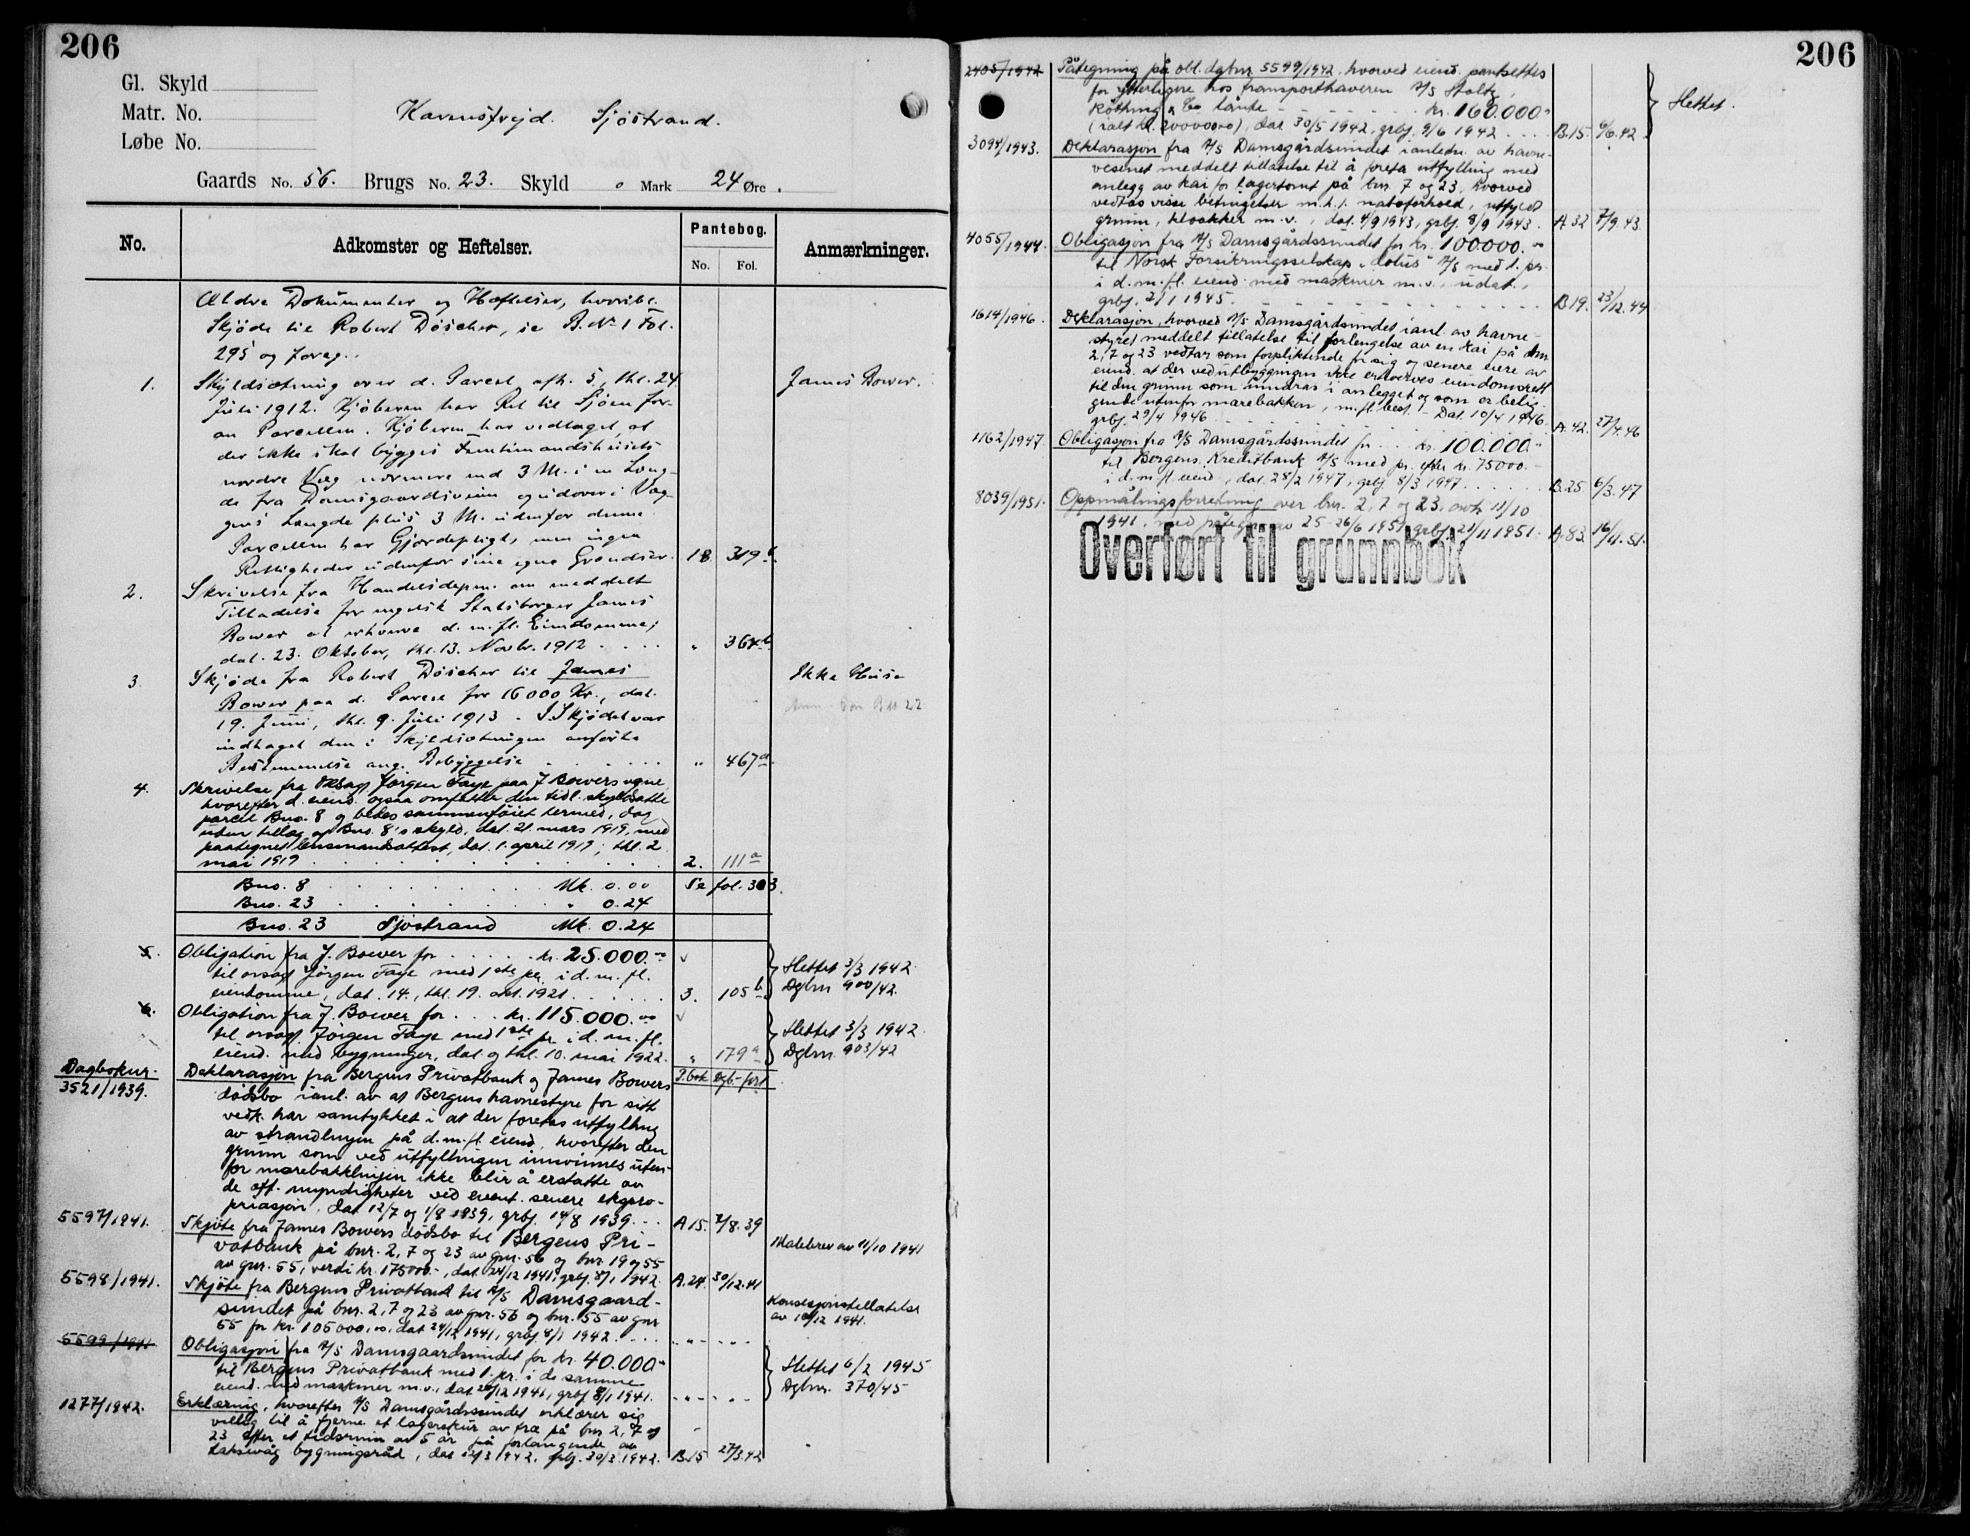 206
Gl. Skyld
Matr. No.
Løbe No.
Sjøstrand.
Gaards No. 56. Brugs No. 23. Skyld 0 Mark 24 Øre.
No.
Adkomster og Heftelser.
Pantebog.
No. Fol.
Anmærkninger.
Ældre Dokumenter og Hæftelser, hvoribl.
Skjøde til Robert Döscher, se B. No 1 Fol.
295 og foreg.
1. Skyldsætning over d. Parcel, afh. 5, thl. 24 James Bower.
Juli 1912. Kjøberen har Ret til Sjøen for-
an Parcellen. Kjøberen har vedtaget, at
der ikke skal bygges Funktionærhusets
nordre Væg nærmere end 3 M. i en Læng-
de fra Damsgaardsveien og udover i Væg-
gens Længde plus 3 M. udenfor denne.
Parcellen har Gjerdepligt, men ingen
Rettigheder udenfor sine egne Grændser. 18 319 b
2. Skrivelse fra Handelsdepm. om meddelt
Tilladelse for engelsk Statsborger James
Bower at erhverve d. m. fl. Eiendomme,
dat. 23. Oktober, thl. 13. Novbr. 1912 . . . . " 364 b
3. Skjøde fra Robert Döscher til James Ikke Huse
Bower paa d. Parcel for 16000 Kr., dat.
19. Juni, thl. 9. Juli 1913. I Skjødet var
indtaget den i Skyldsætningen anførte
Bestemmelse ang. Bebyggelse . . . . " 467 a
4. Skrivelse fra Orsagf. Jørgen Faye paa J. Bowers vegne
hvorefter d. eiend. ogsaa omfatter den tidl. skyldsatte
parcel Bno. 8 og bedes sammenføiet hermed, dog
uten tillæg af Bno. 8's skyld, dat. 21. mars 1919, med
paategnet lensmandsattest, dat. 1. april 1919; thl. 2.
mai 1919 . . . . 2. 111 a
Bno. 8 . . . . Mk. 0.00 Se fol. 303.
Bno. 23 . . . . " 0.24
Bno. 23 Sjøstrand Mk. 0.24
5. Obligation fra J. Bower for . . . . kr. 25.000.00
til orsagf. Jørgen Faye med 1ste pr. i d. m. fl. Slettet 3/3 1942
eiendomme, dat. 14., thl. 19. okt. 1921. . . . 3. 105 b Dgbnr 900/42.
6. Obligation fra J. Bower for . . . kr. 115.000.00
til orsagf. Jørgen Faye med 1ste pr. i d. m. fl. Slettet 3/3 1942.
eiend. med bygninger, dat. og thl. 10. mai 1922. " 179 a Dgbnr. 903/42
Dagboknr. Deklarasjon fra Bergens Privatbank og James Bowers P.bok Dgb.-ført
3521/1939. dødsbo i anl. av at Bergens havnestyre for sitt
vedk. har samtykket i at der foretas utfylling
av strandlinjen på d. m. fl. eiend., hvorefter den
grunn som ved utfyllingen innvinnes uten-
for marebakklinjen ikke blir å erstatte av
de off. myndigheter ved event. senere ekspro-
priasjon. Dat. 12/7 og 1/8 1939, grbf. 14/8 1939. . . A 15. /8.39
5597/1941. Skjøte fra James Bowers dødsbo til Bergens Pri-
vatbank på bnr. 2, 7 og 23 av gnr. 56 og bnr. 19 og 55 Målebrev av 11/10 1941
av gnr. 55, verdi kr. 175000.-, dat. 24/12 1941, grbf. 8/1 1942. A. 24 30/12.41
5598/1941. Skjøte fra Bergens Privatbank til A/S Damsgaard-
sundet på bnr. 2, 7 og 23 av gnr. 56 og bnr. 55 av gnr. Konsesjonstillatelse
55 for kr. 105000,00, dat. 24/12 1941, grbf. 8/1 1942. . . . av 10/12 1941.
5599/1941 Obligasjon fra A/S Damsgaardsundet for kr. 40.000.-
til Bergens Privatbank med 1. pr. i de samme Slettet 6/2 1945
eiend. med maskiner m.v., dat. 29/12 1941, grbf. 8/1 1941. Dgbnr. 370/45
1277/1942. Erklæring, hvorefter A/S Damsgårdssundet erklærer sig
villig til å fjerne et lagerskur av træ på bnr. 2, 7 og
23 efter et tidsrum av 5 år på forlangende av
Laksevåg bygningsråd, dat. 12/3 1942, grbf. 30/3 1942. B. 15 27/3.42
206
2405/1942 Påtegning på obl. dgbnr. 5599/1942, hvorved eiend. pantsettes
for ytterligere hos transporthaveren A/S Stoltz, Slettet.
Røthing & Co lånte . . . kr. 160.000.00
(i alt kr. 200000.00), dat. 30/5 1942, grbf. 9/6 1942. . . . B. 15. 6/6.42
3094/1943. Deklarasjon fra A/S Damsgårdsundet i anledn. av havne-
vesenet meddelt tillatelse til å foreta utfylling med
anlegg av kai for lagertomt på bnr. 7 og 23, hvorved
vedtas visse betingelser m.h.t. naboforhold, utfyldt
grunn, kloakker m.v., dat. 4/9 1943, grbf. 8/9 1943. A. 32 7/9.43.
4055/1944. Obligasjon fra A/S Damsgårdssundet for kr. 100.000.00
til Norsk Forsikringsselskap "Æolus" A/S med 1. pr.
i d. m. fl. eiend. med maskiner m.v., udat.,
grbf. 2/1 1945. . . . B. 19. 23/12.44
1614/1946. Deklarasjon, hvorved A/S Damsgårdsundet i anl. av havne-
styret meddelt tillatelse til forlengelse av en kai på bnr.
2, 7 og 23 vedtar som forpliktende for sig og senere eiere av
eiend. at der ved utbyggingen ikke erhverves eiendomsrett
til den grunn som inndras i anlegget og som er belig-
gende utenfor marebakken, m. fl. best. - Dat. 10/4 1946.
grbf. 29/4 1946 . . . A. 42. 27/4.46
1162/1947. Obligasjon fra A/S Damsgårdssundet for . . . kr. 100.000.-
til Bergens Kreditbank A/S med pr. efter kr. 75000.-
i d. m. fl. eiend., dat. 28/2 1947, grbf. 8/3 1947. . . . B. 25. 6/3.47
8039/1951. Oppmålingsforretning over bnr. 2, 7 og 23, avh. 11/10
1941, med påtegn. av 25-26/6 1951, grbf. 21/11 1951. A. 83. 16/11.51.
Overført til grunnbok